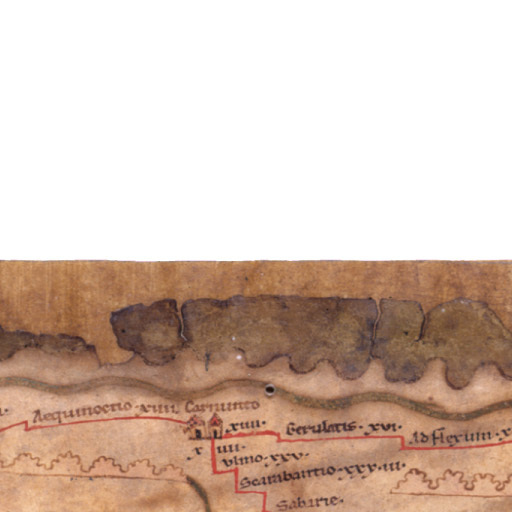 Aequinoctio · xiiii · Carnunto
xiiii · Gerulatis · xvi · Ad flexum · x
x iiii ·
vlmo · xxv ·
Scarabantio · xxx · iiii ·
Sabarie ·